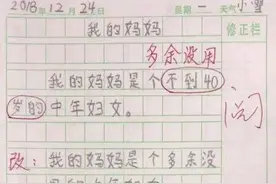 2018年12月24日 星期一 天气小雪
修正栏
我的妈妈
多余没用
我的妈妈是个不到40
岁的中年妇女。
阅
改：我的妈妈是个多余没